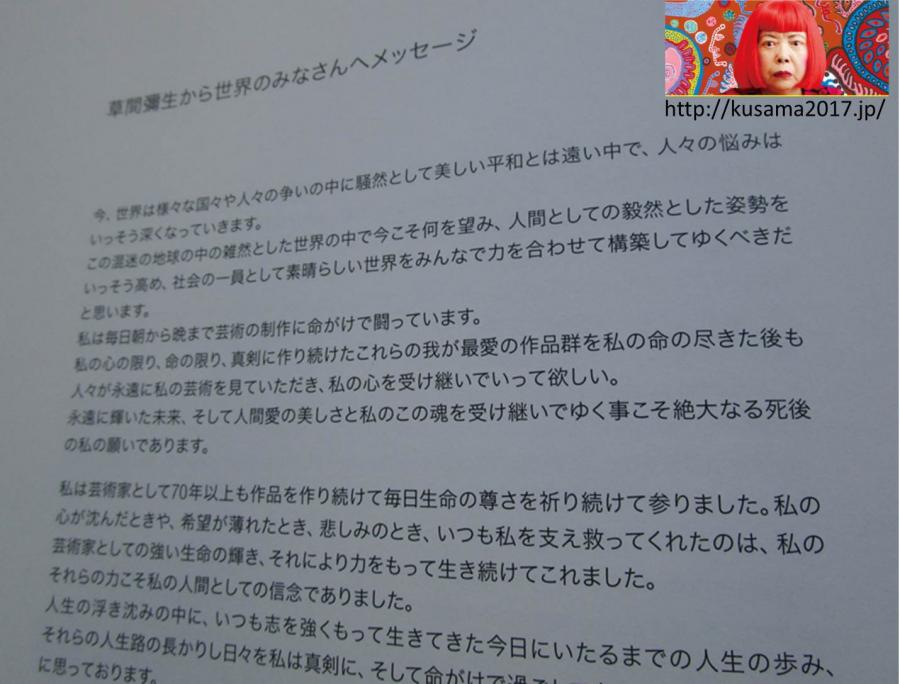 http://kusama2017.jp/
草間彌生から世界のみなさんへメッセージ
今、世界は様々な国々や人々の争いの中に騒然として美しい平和とは遠い中で、人々の悩みは
いっそう深くなっていきます。
この混迷の地球の中の雑然とした世界の中で今こそ何を望み、人間としての毅然とした姿勢を
いっそう高め、社会の一員として素晴らしい世界をみんなで力を合わせて構築してゆくべきだ
と思います。
私は毎日朝から晩まで芸術の制作に命がけで闘っています。
私の心の限り、命の限り、真剣に作り続けたこれらの我が最愛の作品群を私の命の尽きた後も
人々が永遠に私の芸術を見ていただき、私の心を受け継いでいって欲しい。
永遠に輝いた未来、そして人間愛の美しさと私のこの魂を受け継いでゆく事こそ絶大なる死後
の私の願いであります。
私は芸術家として70年以上も作品を作り続けて毎日生命の尊さを祈り続けて参りました。私の
心が沈んだときや、希望が薄れたとき、悲しみのとき、いつも私を支え救ってくれたのは、私の
芸術家としての強い生命の輝き、それにより力をもって生き続けてこれました。
それらの力こそ私の人間としての信念でありました。
人生の浮き沈みの中に、いつも志を強くもって生きてきた今日にいたるまでの人生の歩み、
それらの人生路の長かりし日々を私は真剣に、そして命がけで過ごし
に思っております。